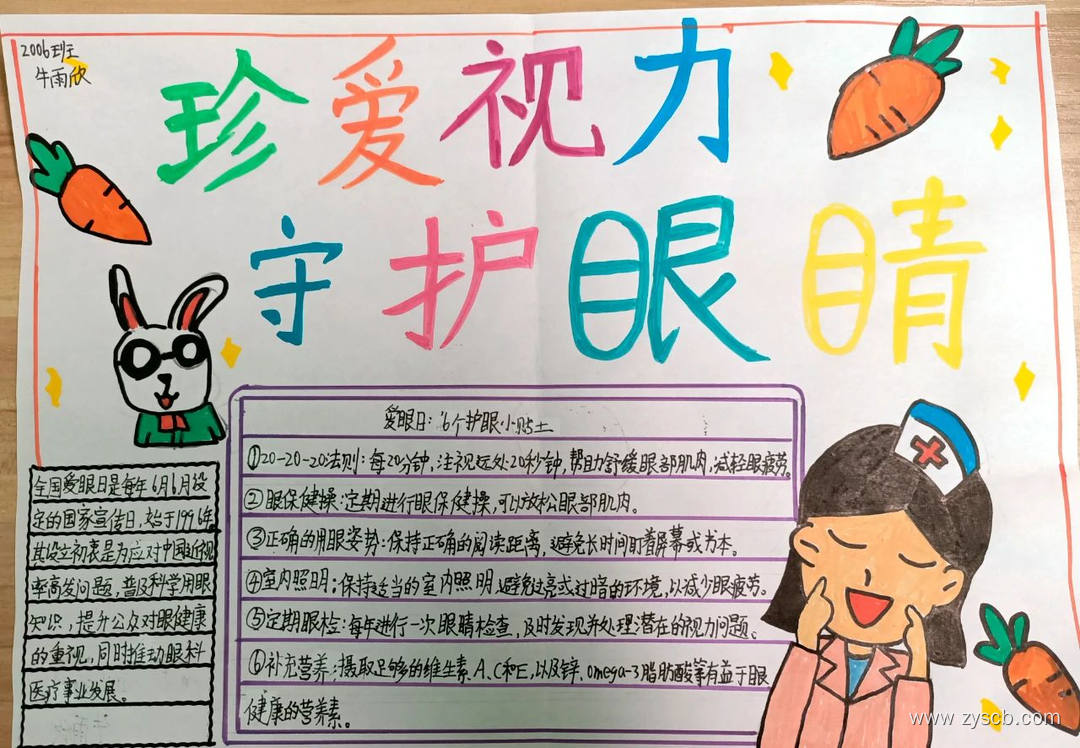 2006班
牛雨欣
珍爱视力
守护眼睛
全国爱眼日是每年6月6月设
定的国家宣传日，始于1996年
其设立初衷是为应对中国近视
率高发问题，普及科学用眼
知识，提升公众对眼健康
的重视，同时推动眼科
医疗事业发展。
爱眼日：6个护眼小贴士
①20-20-20法则：每20分钟，注视远处20秒钟，帮助舒缓眼部肌肉，减轻眼疲劳。
②眼保健操：定期进行眼保健操，可以放松眼部肌肉。
③正确的用眼姿势：保持正确的阅读距离，避免长时间盯着屏幕或书本。
④室内照明：保持适当的室内照明，避免过亮或过暗的环境，以减少眼疲劳。
⑤定期眼检：每年进行一次眼睛检查，及时发现并处理潜在的视力问题。
⑥补充营养：摄取足够的维生素A、C和E，以及锌、omega-3脂肪酸等有益于眼
健康的营养素。
www.zyscb.com